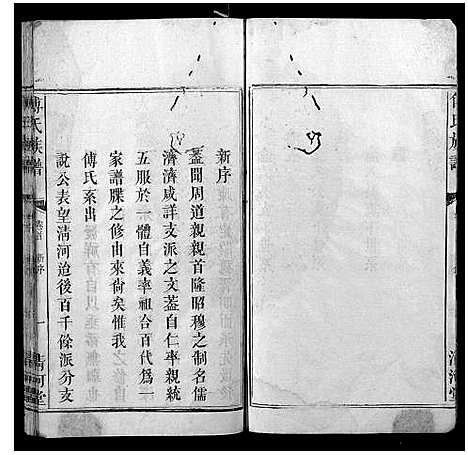 新序
蓋聞周道親親首隆昭穆之制名儒
濟濟咸詳支派之文蓋自仁率親統
五服於一體自義率祖合百代爲一
家譜牒之修由來尙矣惟我
傅氏系出
說公表望淸河迨後百千餘派分支
傅氏族譜
新序
一
淸河堂
傅氏族譜
淸河堂